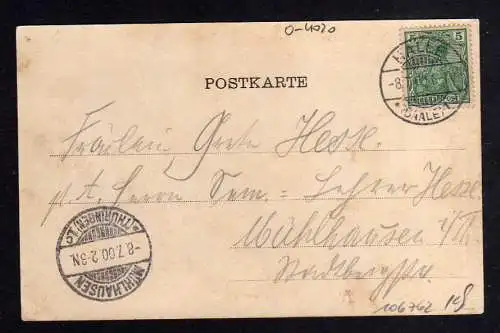 0-4020
5
HALLE
-8.7.
* (SAALE) *
POSTKARTE
Fräulein Grete Hesse.
p. A. Herrn Sem.= Lehrer Hesse.
Mühlhausen i/Th.
* (THÜRINGEN) *
-8.7.00.2-3N.
MÜHLHAUSEN
106762